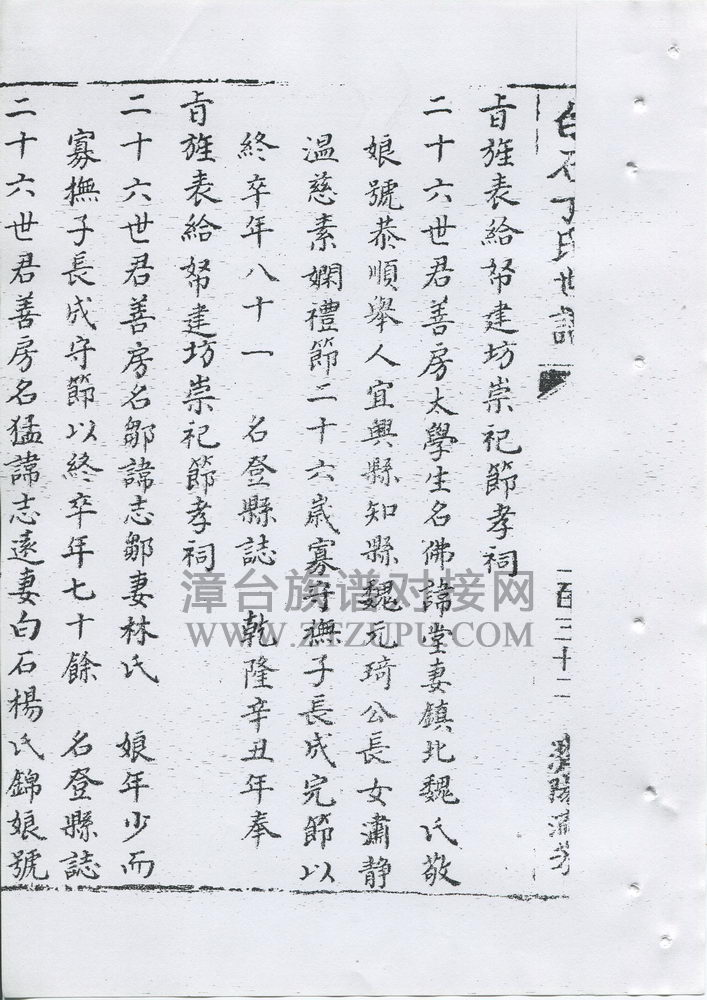 白石丁氏世譜
一百三十二
旨旌表給帑建坊崇祀節孝祠
二十六世君善房太學生名佛諱堂妻鎮北魏氏敬
娘號恭順舉人宜興縣知縣魏元琦公長女肅静
溫慈素嫻禮節二十六歲寡守撫子長成完節以
終卒年八十一 名登縣誌 乾隆辛丑年奉
旨旌表給帑建坊崇祀節孝祠
二十六世君善房名鄒諱志鄒妻林氏 娘年少而
寡撫子長成守節以終卒年七十餘 名登縣誌
二十六世君善房名猛諱志遠妻白石楊氏錦娘號
漳台族谱对接网
WWW.ZTZUPU.COM